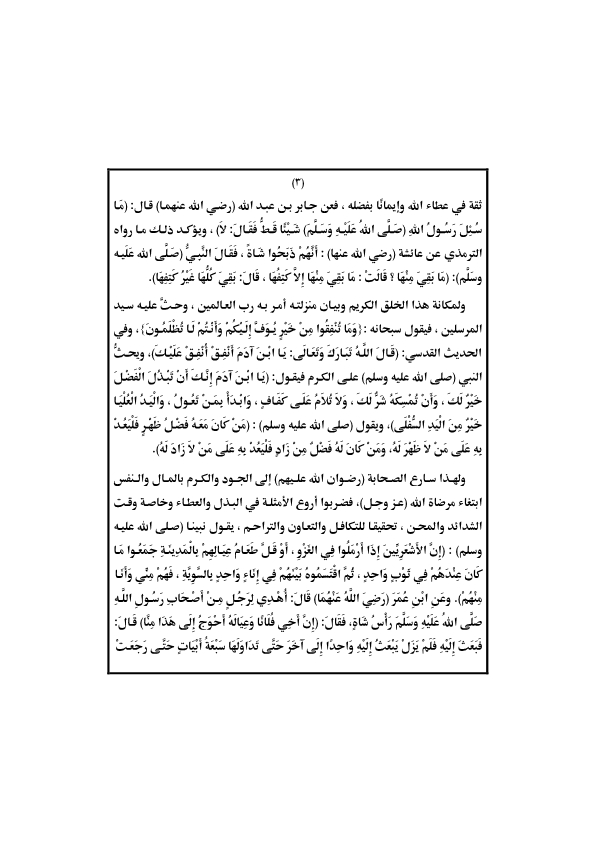 (٣)
ثقة في عطاء الله وإيمانًا بفضله ، فعن جابر بن عبد الله (رضي الله عنهما) قال: (مَا
سُئِلَ رَسُولُ اللهِ (صَلَّى اللهُ عَلَيْهِ وَسَلَّمَ) شَيْئًا قَطُّ فَقَالَ: لاَ) ، ويؤكد ذلك ما رواه
الترمذي عن عائشة (رضي الله عنها) : أَنَّهُمْ ذَبَحُوا شَاةً ، فَقَالَ النَّبِيُّ (صَلَّى الله عَلَيه
وسَلَّم): (مَا بَقِيَ مِنْهَا ؟ قَالَتْ : مَا بَقِيَ مِنْهَا إِلاَّ كَتِفُهَا ، قَالَ: بَقِيَ كُلُّهَا غَيْرُ كَتِفِهَا).
ولمكانة هذا الخلق الكريم وبيان منزلته أمر به رب العالمين ، وحثَّ عليه سيد
المرسلين ، فيقول سبحانه :{وَمَا تُنْفِقُوا مِنْ خَيْرٍ يُوَفَّ إِلَيْكُمْ وَأَنْتُمْ لَا تُظْلَمُونَ}، وفي
الحديث القدسي: (قَالَ اللَّهُ تَبَارَكَ وَتَعَالَى: يَا ابْنَ آدَمَ أَنْفِقْ أُنْفِقْ عَلَيْكَ)، ويحثُّ
النبي (صلى الله عليه وسلم) على الكرم فيقول: (يَا ابْنَ آدَمَ إِنَّكَ أَنْ تَبْذُلَ الْفَضْلَ
خَيْرٌ لَكَ ، وَأَنْ تُمْسِكَهُ شَرٌّ لَكَ ، وَلاَ تُلاَمُ عَلَى كَفَافٍ ، وَابْدَأْ بِمَنْ تَعُولُ ، وَالْيَدُ الْعُلْيَا
خَيْرٌ مِنَ الْيَدِ السُّفْلَى)، ويقول (صلى الله عليه وسلم) : (مَنْ كَانَ مَعَهُ فَضْلُ ظَهْرٍ فَلْيَعُدْ
بِهِ عَلَى مَنْ لاَ ظَهْرَ لَهُ، وَمَنْ كَانَ لَهُ فَضْلٌ مِنْ زَادٍ فَلْيَعُدْ بِهِ عَلَى مَنْ لاَ زَادَ لَهُ).
ولهذا سارع الصحابة (رضوان الله عليهم) إلى الجود والكرم بالمال والنفس
ابتغاء مرضاة الله (عز وجل)، فضربوا أروع الأمثلة في البذل والعطاء وخاصة وقت
الشدائد والمحن ، تحقيقا للتكافل والتعاون والتراحم ، يقول نبينا (صلى الله عليه
وسلم) : (إِنَّ الأَشْعَرِيِّينَ إِذَا أَرْمَلُوا فِي الغَزْوِ ، أَوْ قَلَّ طَعَامُ عِيَالِهِمْ بِالْمَدِينَةِ جَمَعُوا مَا
كَانَ عِنْدَهُمْ فِي ثَوْبٍ وَاحِدٍ ، ثُمَّ اقْتَسَمُوهُ بَيْنَهُمْ فِي إِنَاءٍ وَاحِدٍ بِالسَّوِيَّةِ ، فَهُمْ مِنِّي وَأَنَا
مِنْهُمْ). وعَنِ ابْنِ عُمَرَ (رَضِيَ اللَّهُ عَنْهُمَا) قَالَ: أُهْدِي لِرَجُلٍ مِنْ أَصْحَابِ رَسُولِ اللَّهِ
صَلَّى اللهُ عَلَيْهِ وَسَلَّمَ رَأْسُ شَاةٍ، فَقَالَ: (إِنَّ أَخِي فُلَانًا وَعِيَالَهُ أَحْوَجُ إِلَى هَذَا مِنَّا) قَالَ:
فَبَعَثَ إِلَيْهِ فَلَمْ يَزَلْ يَبْعَثُ إِلَيْهِ وَاحِدًا إِلَى آخَرَ حَتَّى تَدَاوَلَهَا سَبْعَةُ أَبْيَاتٍ حَتَّى رَجَعَتْ